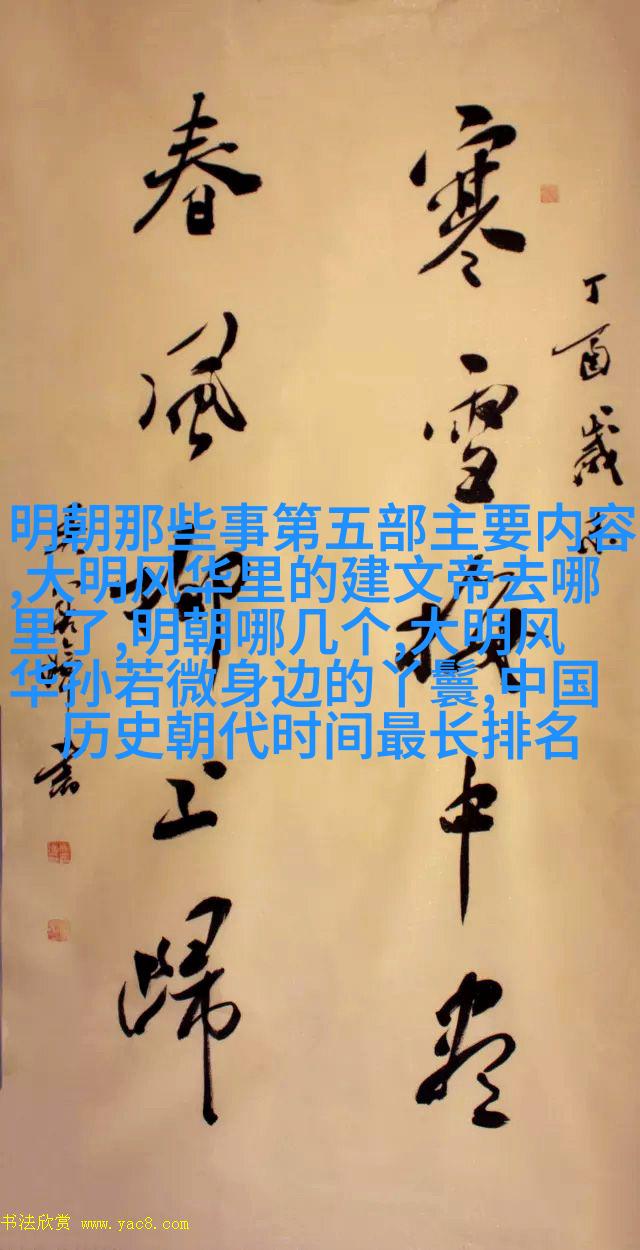 丁酉歲
寒雪梅中尽
春風柳上歸
書
明朝那些事第五部主要内容
,大明风华里的建文帝去哪
里了,明朝哪几个,大明风
华孙若微身边的丫鬟,中国
历史朝代时间最长排名
书法欣赏 www.yac8.com